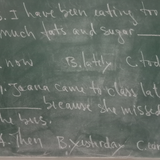 6. I have been eating too
much fats and sugar ___
now B. lately C. tod
7. Joana came to class lat
___ because she missed
the bus.
A. then B. yesterday C.